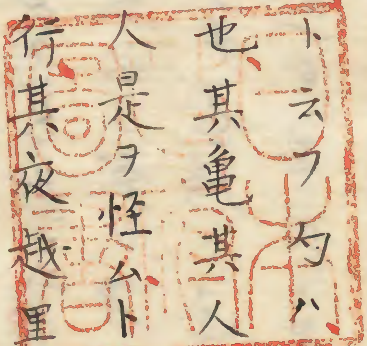 ト云フ勺ハ
也其亀其人
人是ヲ怪ムト
行其夜越里